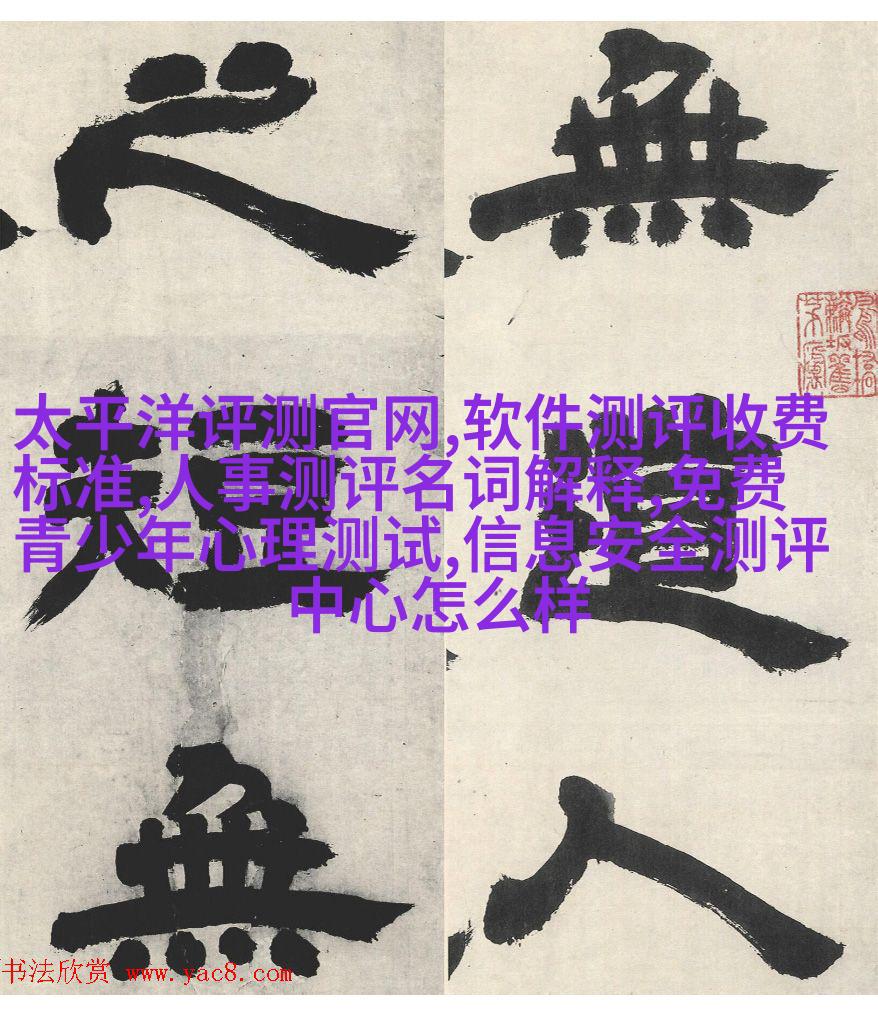 無道人
之短無
太平洋评测官网,软件测评收费
标准,人事测评名词解释,免费
青少年心理测试,信息安全测评
中心怎么样
书法欣赏 www.yac8.com